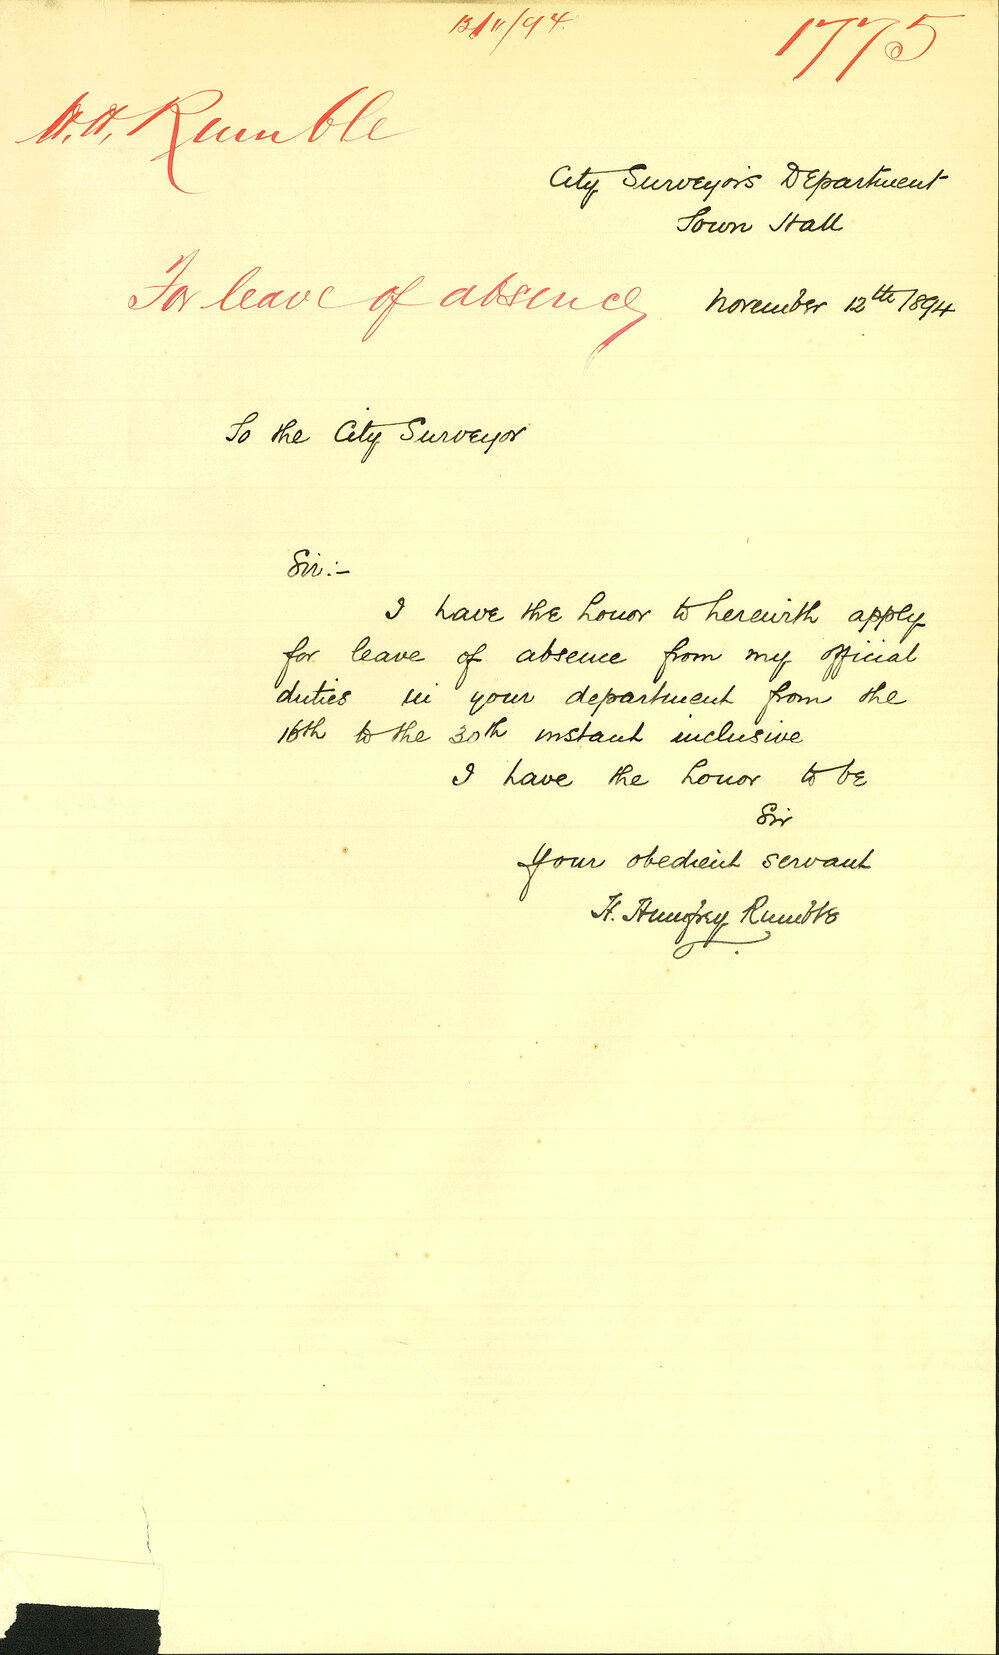 13/11/94
1775
H. H. Rumble
City Surveyor's Department
Town Hall
For leave of absence
November 12th 1894
To the City Surveyor
Sir:-
I have the honor to herewith apply
for leave of absence from my official
duties in your department from the
16th to the 30th instant inclusive
I have the honor to be
Sir
Your obedient servant
H. Humfrey Rumble